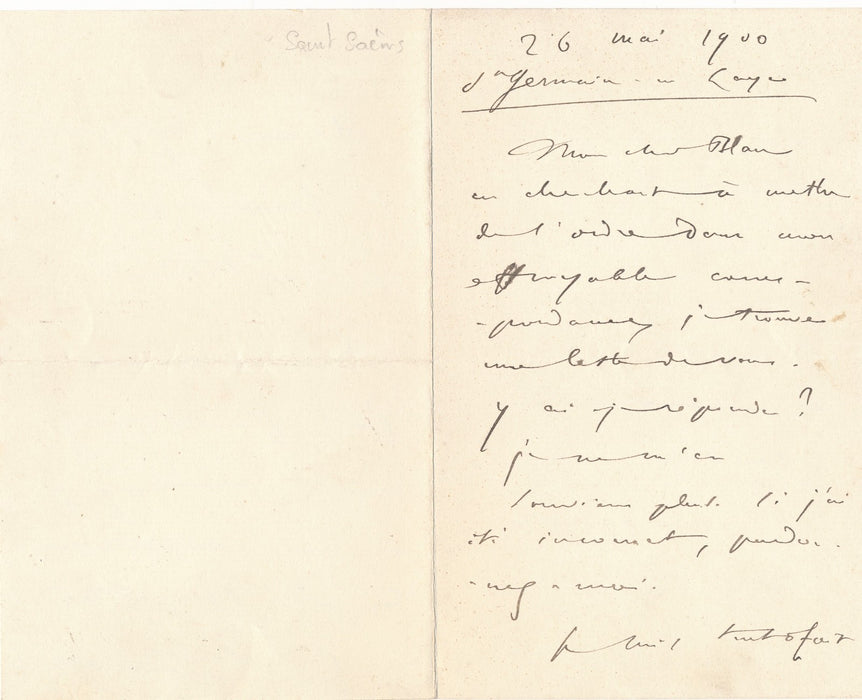 Saint Saëns
26 mai 1900
St Germain-en Laye
Mon cher Blau
en cherchant à mettre
de l'ordre dans mon
effroyable corres-
-pondance, je trouve
une lettre de vous.
y ai je répondu ?
je ne m'en
souviens plus. Si j'ai
été incorrect, pardon-
-nez-moi.
je suis tout à fait